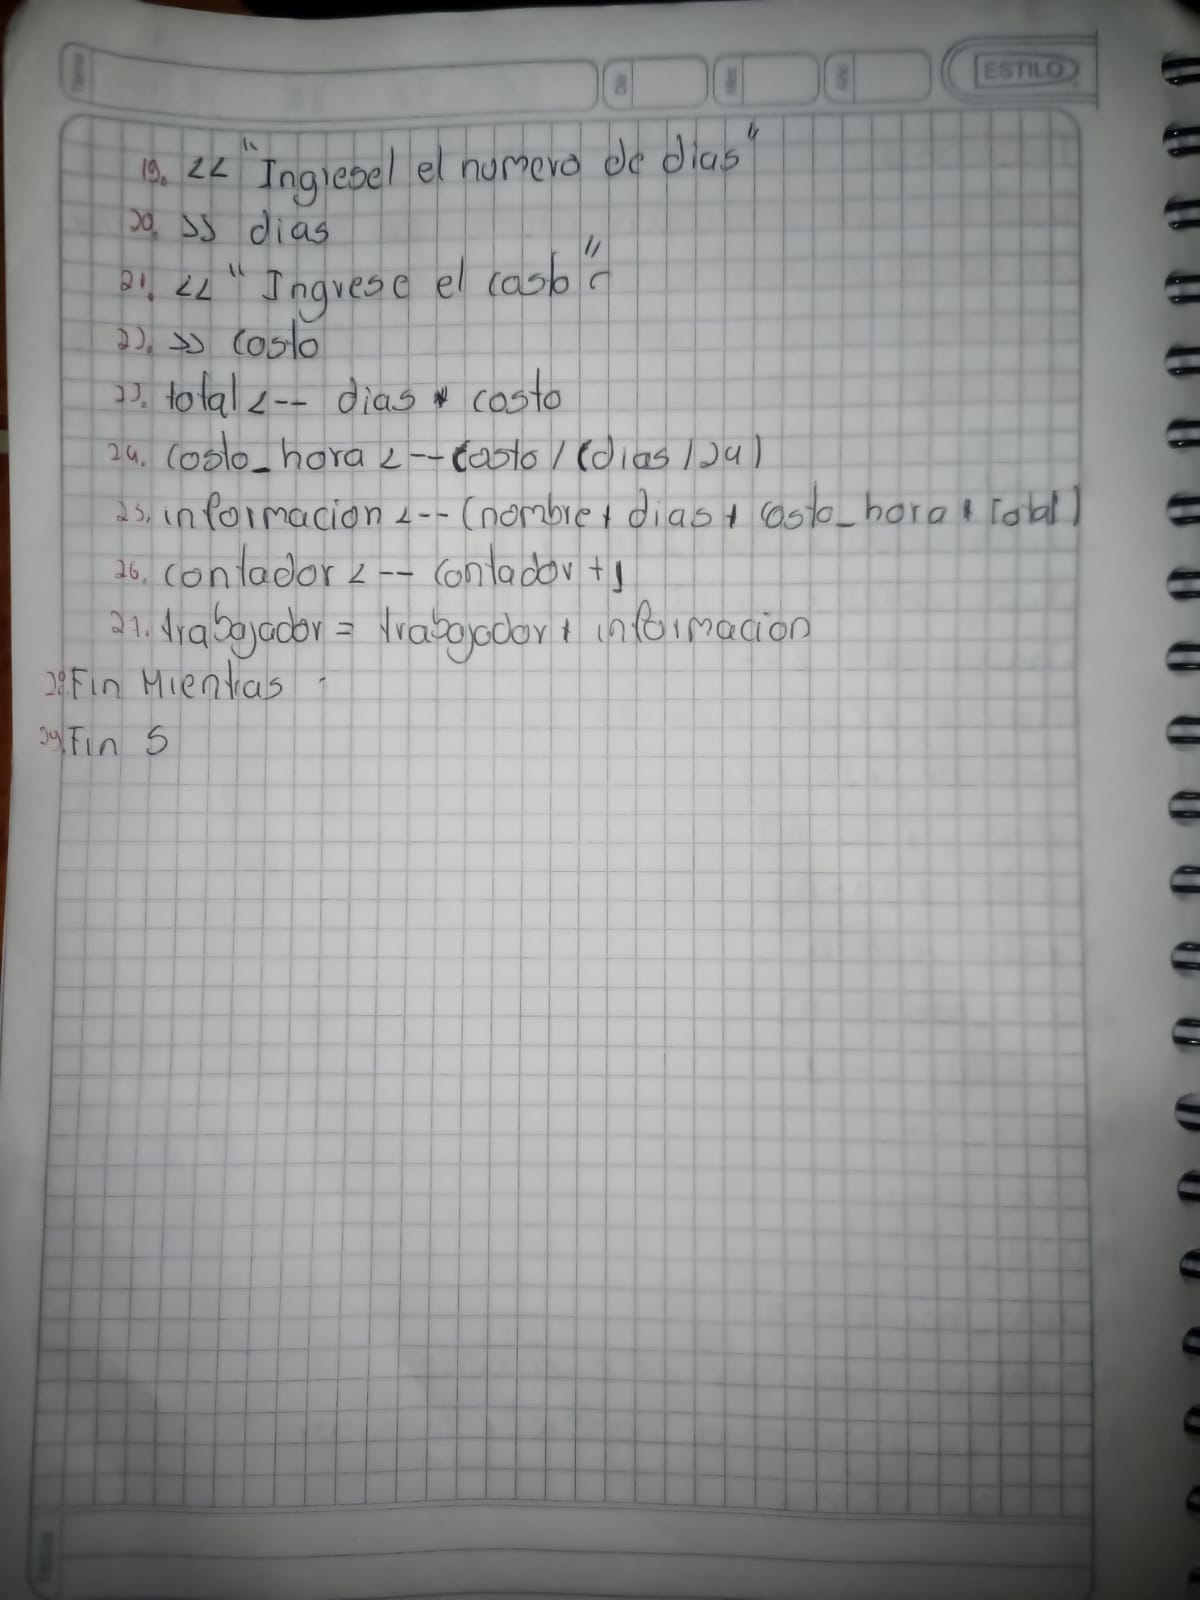 Tema
Dia
Mes
Año
ESTILO
19. << "Ingresel el numero de dias"
20. >> dias
21. << "Ingrese el casto"
22. >> costo
23. total <-- dias * costo
24. costo_hora <-- casto / (dias / 24)
25. informacion <-- (nombre + dias + costo_hora + total)
26. contador <-- contador + 1
27. trabajador = trabajador + informacion
28. Fin Mientras
29. Fin S